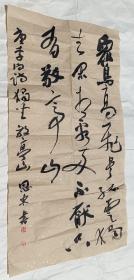 眾鳥高飛尽孤雲獨
去闲相看两不厭只
有敬亭山
唐李白詩獨坐敬亭山
書